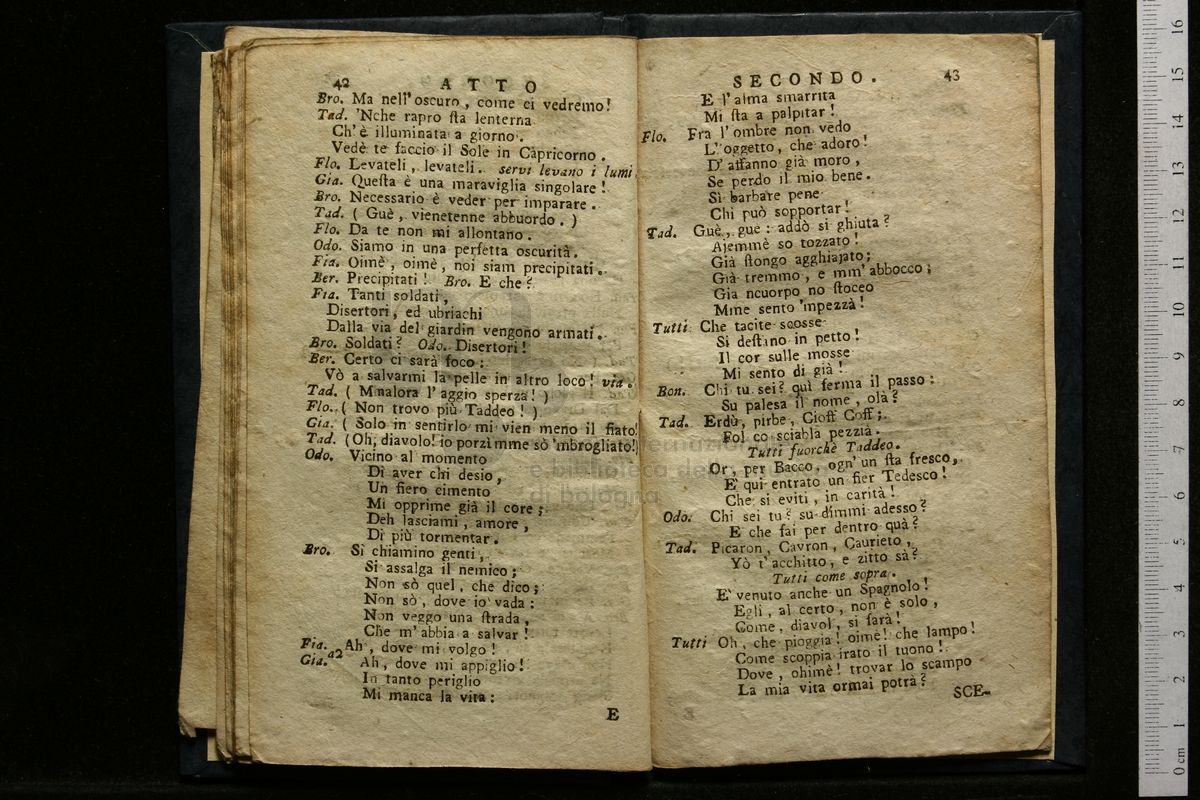 42 ATTO
Bro. Ma nell' oscuro, come ci vedremo!
Tad. 'Nche rapro sta lenterna
Ch' è illuminata a giorno.
Vedè te faccio il Sole in Capricorno.
Flo. Levateli, levateli. servi levano i lumi
Gia. Questa è una maraviglia singolare!
Bro. Necessario è veder per imparare.
Tad. ( Guè, vienetenne abbuordo. )
Flo. Da te non mi allontano.
Odo. Siamo in una perfetta oscurità.
Fia. Oimè, oimè, noi siam precipitati.
Ber. Precipitati! Bro. E che?
Fia. Tanti soldati,
Disertori, ed ubriachi
Dalla via del giardin vengono armati.
Bro. Soldati? Odo. Disertori!
Ber. Certo ci sarà foco;
Vò a salvarmi la pelle in altro loco! via.
Tad. ( Mmalora l' aggio sperza! )
Flo. ( Non trovo più Taddeo! )
Gia. ( Solo in sentirlo mi vien meno il fiato!
Tad. (Oh, diavolo! io porzì mme sò 'mbrogliato!)
Odo. Vicino al momento
Di aver chi desio,
Un fiero cimento
Mi opprime già il core;
Deh lasciami, amore,
Di più tormentar.
Bro. Si chiamino genti,
Si assalga il nemico;
Non sò quel, che dico;
Non sò, dove io vada:
Non veggo una strada,
Che m' abbia a salvar!
Fia. a2 Ah, dove mi volgo!
Gia. Ah, dove mi appiglio!
In tanto periglio
Mi manca la vita:
E
SECONDO. 43
E l' alma smarrita
Mi sta a palpitar!
Flo. Fra l' ombre non vedo
L' oggetto, che adoro!
D' affanno già moro,
Se perdo il mio bene.
Sì barbare pene
Chi può sopportar!
Tad. Guè, gue: addò si ghiuta?
Ajemmè so tozzato!
Già stongo agghiajato;
Già tremmo, e mm' abbocco;
Gia ncuorpo no stoceo
Mme sento 'mpezzà!
Tutti Che tacite scosse
Si destano in petto!
Il cor sulle mosse
Mi sento di già!
Bon. Chi tu sei? quì ferma il passo:
Su palesa il nome, olà?
Tad. Erdù, pirbe, Cioff Coff;
Fol co sciabla pezzia.
Tutti fuorchè Taddeo.
Or, per Bacco, ogn' un sta fresco,
E' qui entrato un fier Tedesco!
Che si eviti, in carità!
Odo. Chi sei tu? su dimmi adesso?
E che fai per dentro quà?
Tad. Picaron, Cavron, Caurieto,
Yò t' acchitto, e zitto sà?
Tutti come sopra.
E' venuto anche un Spagnolo!
Egli, al certo, non è solo,
Come, diavol, si farà!
Tutti Oh, che pioggia! oimè! che lampo!
Come scoppia irato il tuono!
Dove, ohimè! trovar lo scampo
La mia vita ormai potrà?
SCE-